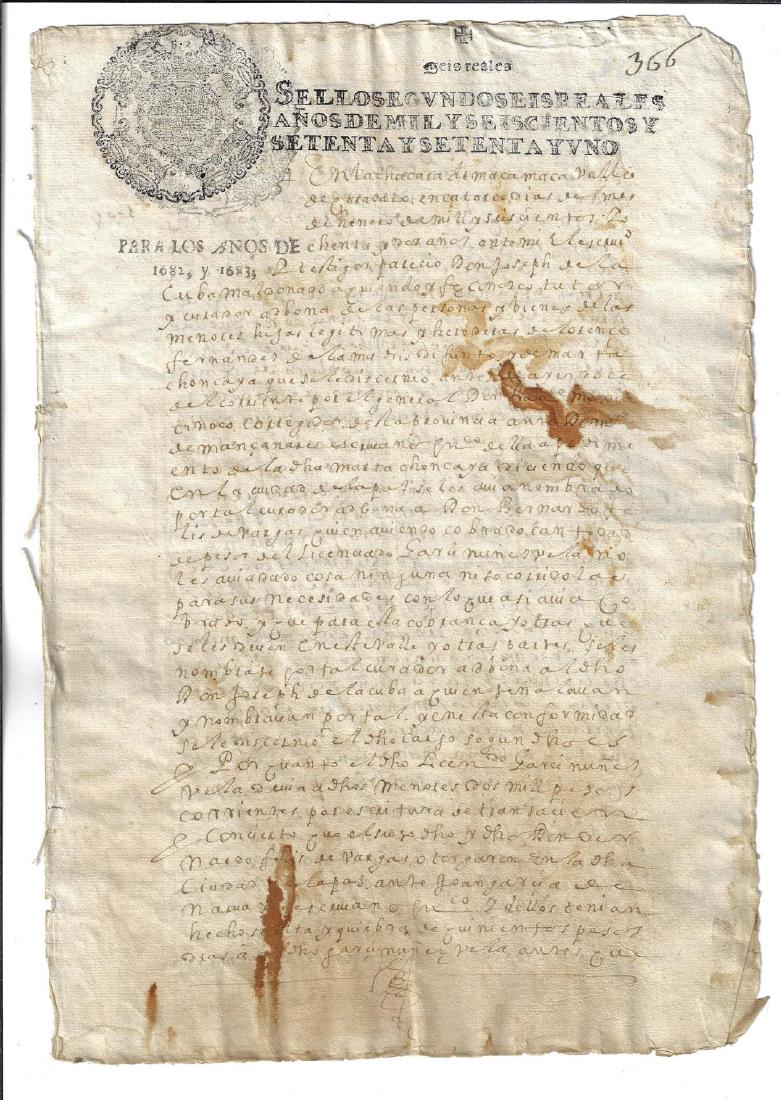 366
Seis reales
SELLO SEGVNDO SEIS REALES
AÑOS DE MIL Y SEISCIENTOS Y
SETENTA Y SETENTA Y VNO
En la chacara de macamaca Valle
en catorce dias del mes
de henero de mill y seiscientos. Y o
PARA LOS AÑOS DE
chenta y dos años, ante mi el escriuº
1682, y 1683,
Y testigos parecio Don Joseph de la
Cuba maldonado a quien doy fe conosco, tutor
y curador adbona de las personas y bienes de las
menores hijas legitimas y herederas de Lorenço
fernandes de la difunto y de marta
choncaya que se le discernio, ante
por el general Don
tinoco corregidor desta prouincia ante
de mançanares escriuano puco della a pedimi
ento de la dha marta choncaya diciendo que
En la ciudad de la paz se les auia nembrado
por tal curador adbona a Don Bernardo fe
lis de Vargas, quien auiendo cobrado cantidad
de pesos del licenciado Garci nuñes vela no
les auia dado cosa ninguna ni socorrido las
para sus necesidades con lo que asi auia co
brado, y que para esta cobrança y otras que
se les deuen En este Valle y otras partes, se les
nombrase por tal curador adbona al dho
Don Joseph de la cuba a quien señalauan
y nombrauan por tal, y en esta conformidad
se le discernio el dho cargo segun dho es
Y Por quanto el dho Licendo Garci nuñes
vela deuia a dhos menores dos mill pesos
corrientes por escritura de transacion
y Concierto que el suso dho y dho Don Ber
nardo felis de Vargas otorgaron En la dha
Ciudad de la paz, ante Joan garcia de
escriuano puco Y dellos tenian
hecho suelta y quiebra de quinientos pesos
al dho garci nuñez vela, antes que